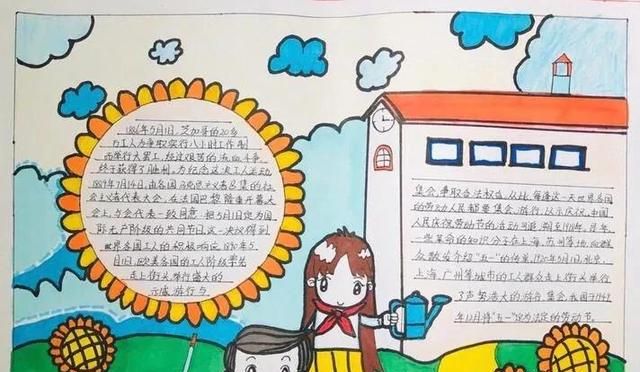 1886年5月1日,芝加哥的20多
万工人为争取实行八小时工作制
而举行大罢工,经过艰苦的流血斗争,
终于获得了胜利,为纪念这次工人运动
1889年7月14日,由各国马克思主义者召集的社
会主义者代表大会,在法国巴黎隆重开幕
大会上,与会代表一致同意:把5月1日定为国
际无产阶级的共同节日,这一决议得到
世界各国工人的积极响应,1890年5
月1日,欧美各国的工人阶级率先
走上街头,举行盛大的
示威游行与
集会,争取合法权益,从此,每逢这一天世界各国
的劳动人民都要集会、游行,以示庆祝,中国
人民庆祝劳动节的活动可追溯至1918年,是年
一些革命的知识分子在上海、苏州等地,向群
众散发介绍"五一"的传单,1920年5月1日,北京
上海、广州等城市的工人群众走上街头,举行
了声势浩大的游行、集会,我国于1949
年12月将"五一"定为法定的劳动节。